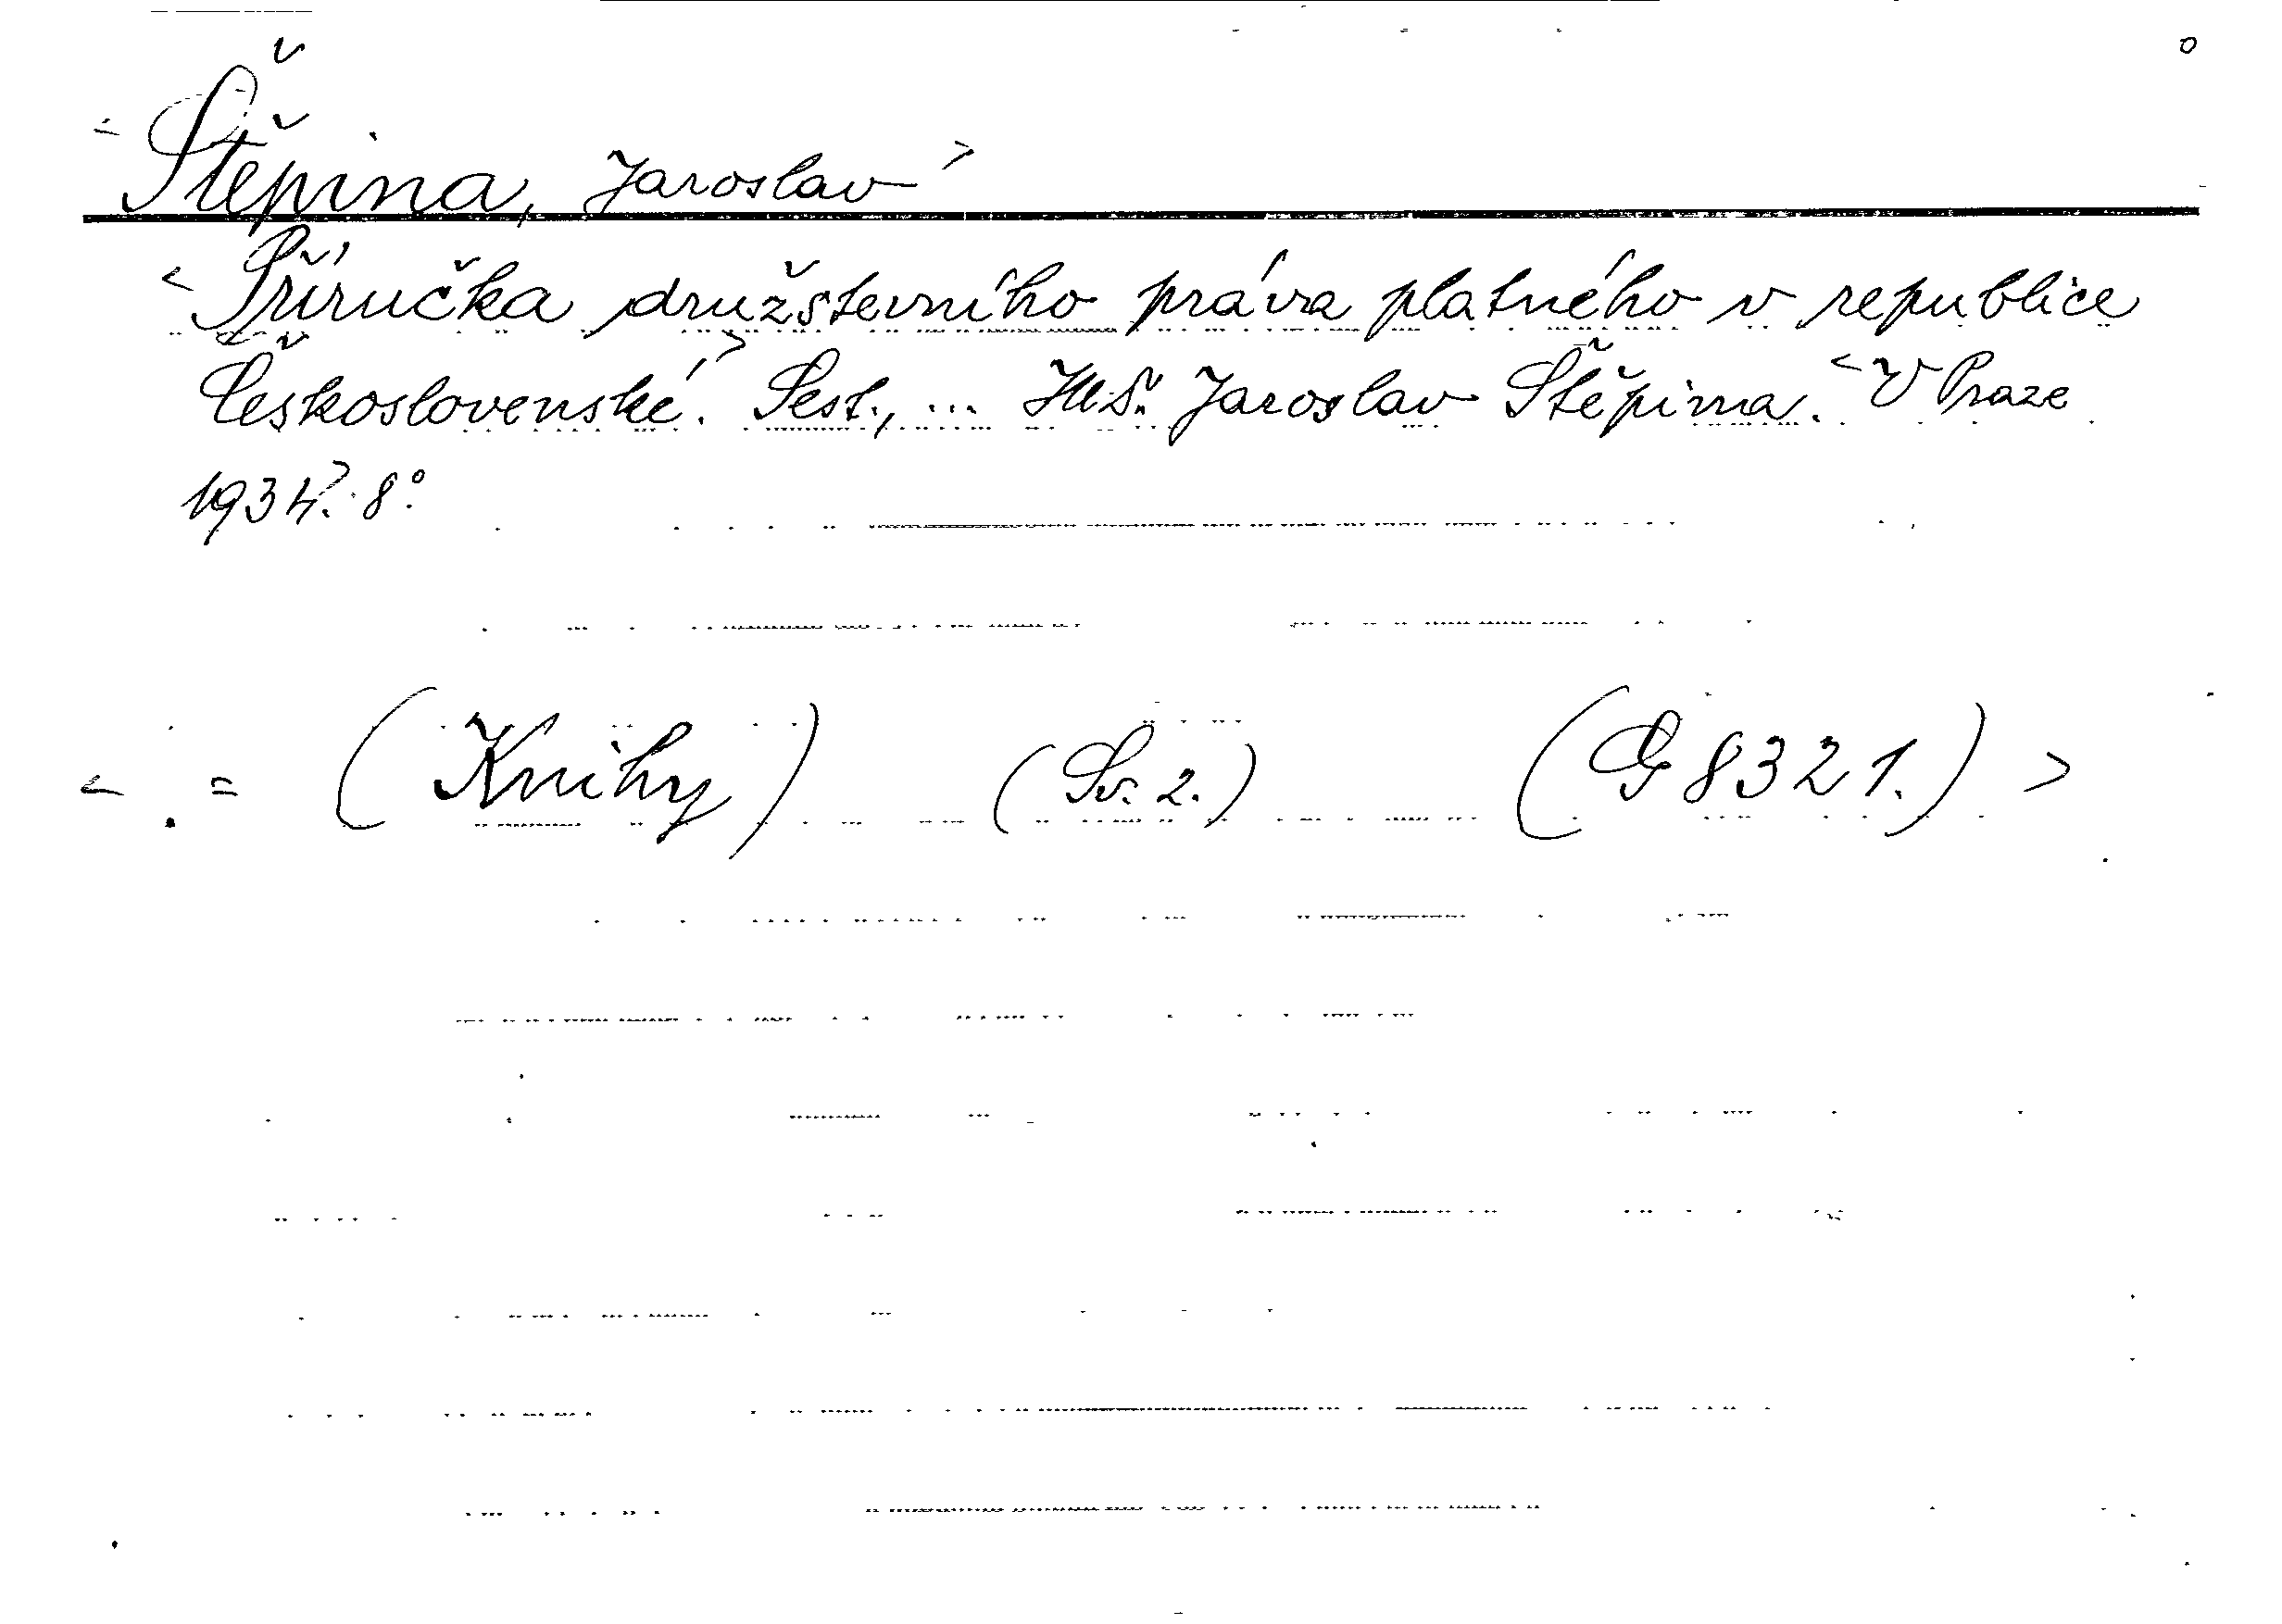 < Štěpina, Jaroslav >
< Příručka družstevního práva platného v republice
Československé.> Sest., ... Jaroslav Štěpina. < V Praze
1934.> 8°.
< = (Knihy) (Sv. 2.) (G 8321.) >